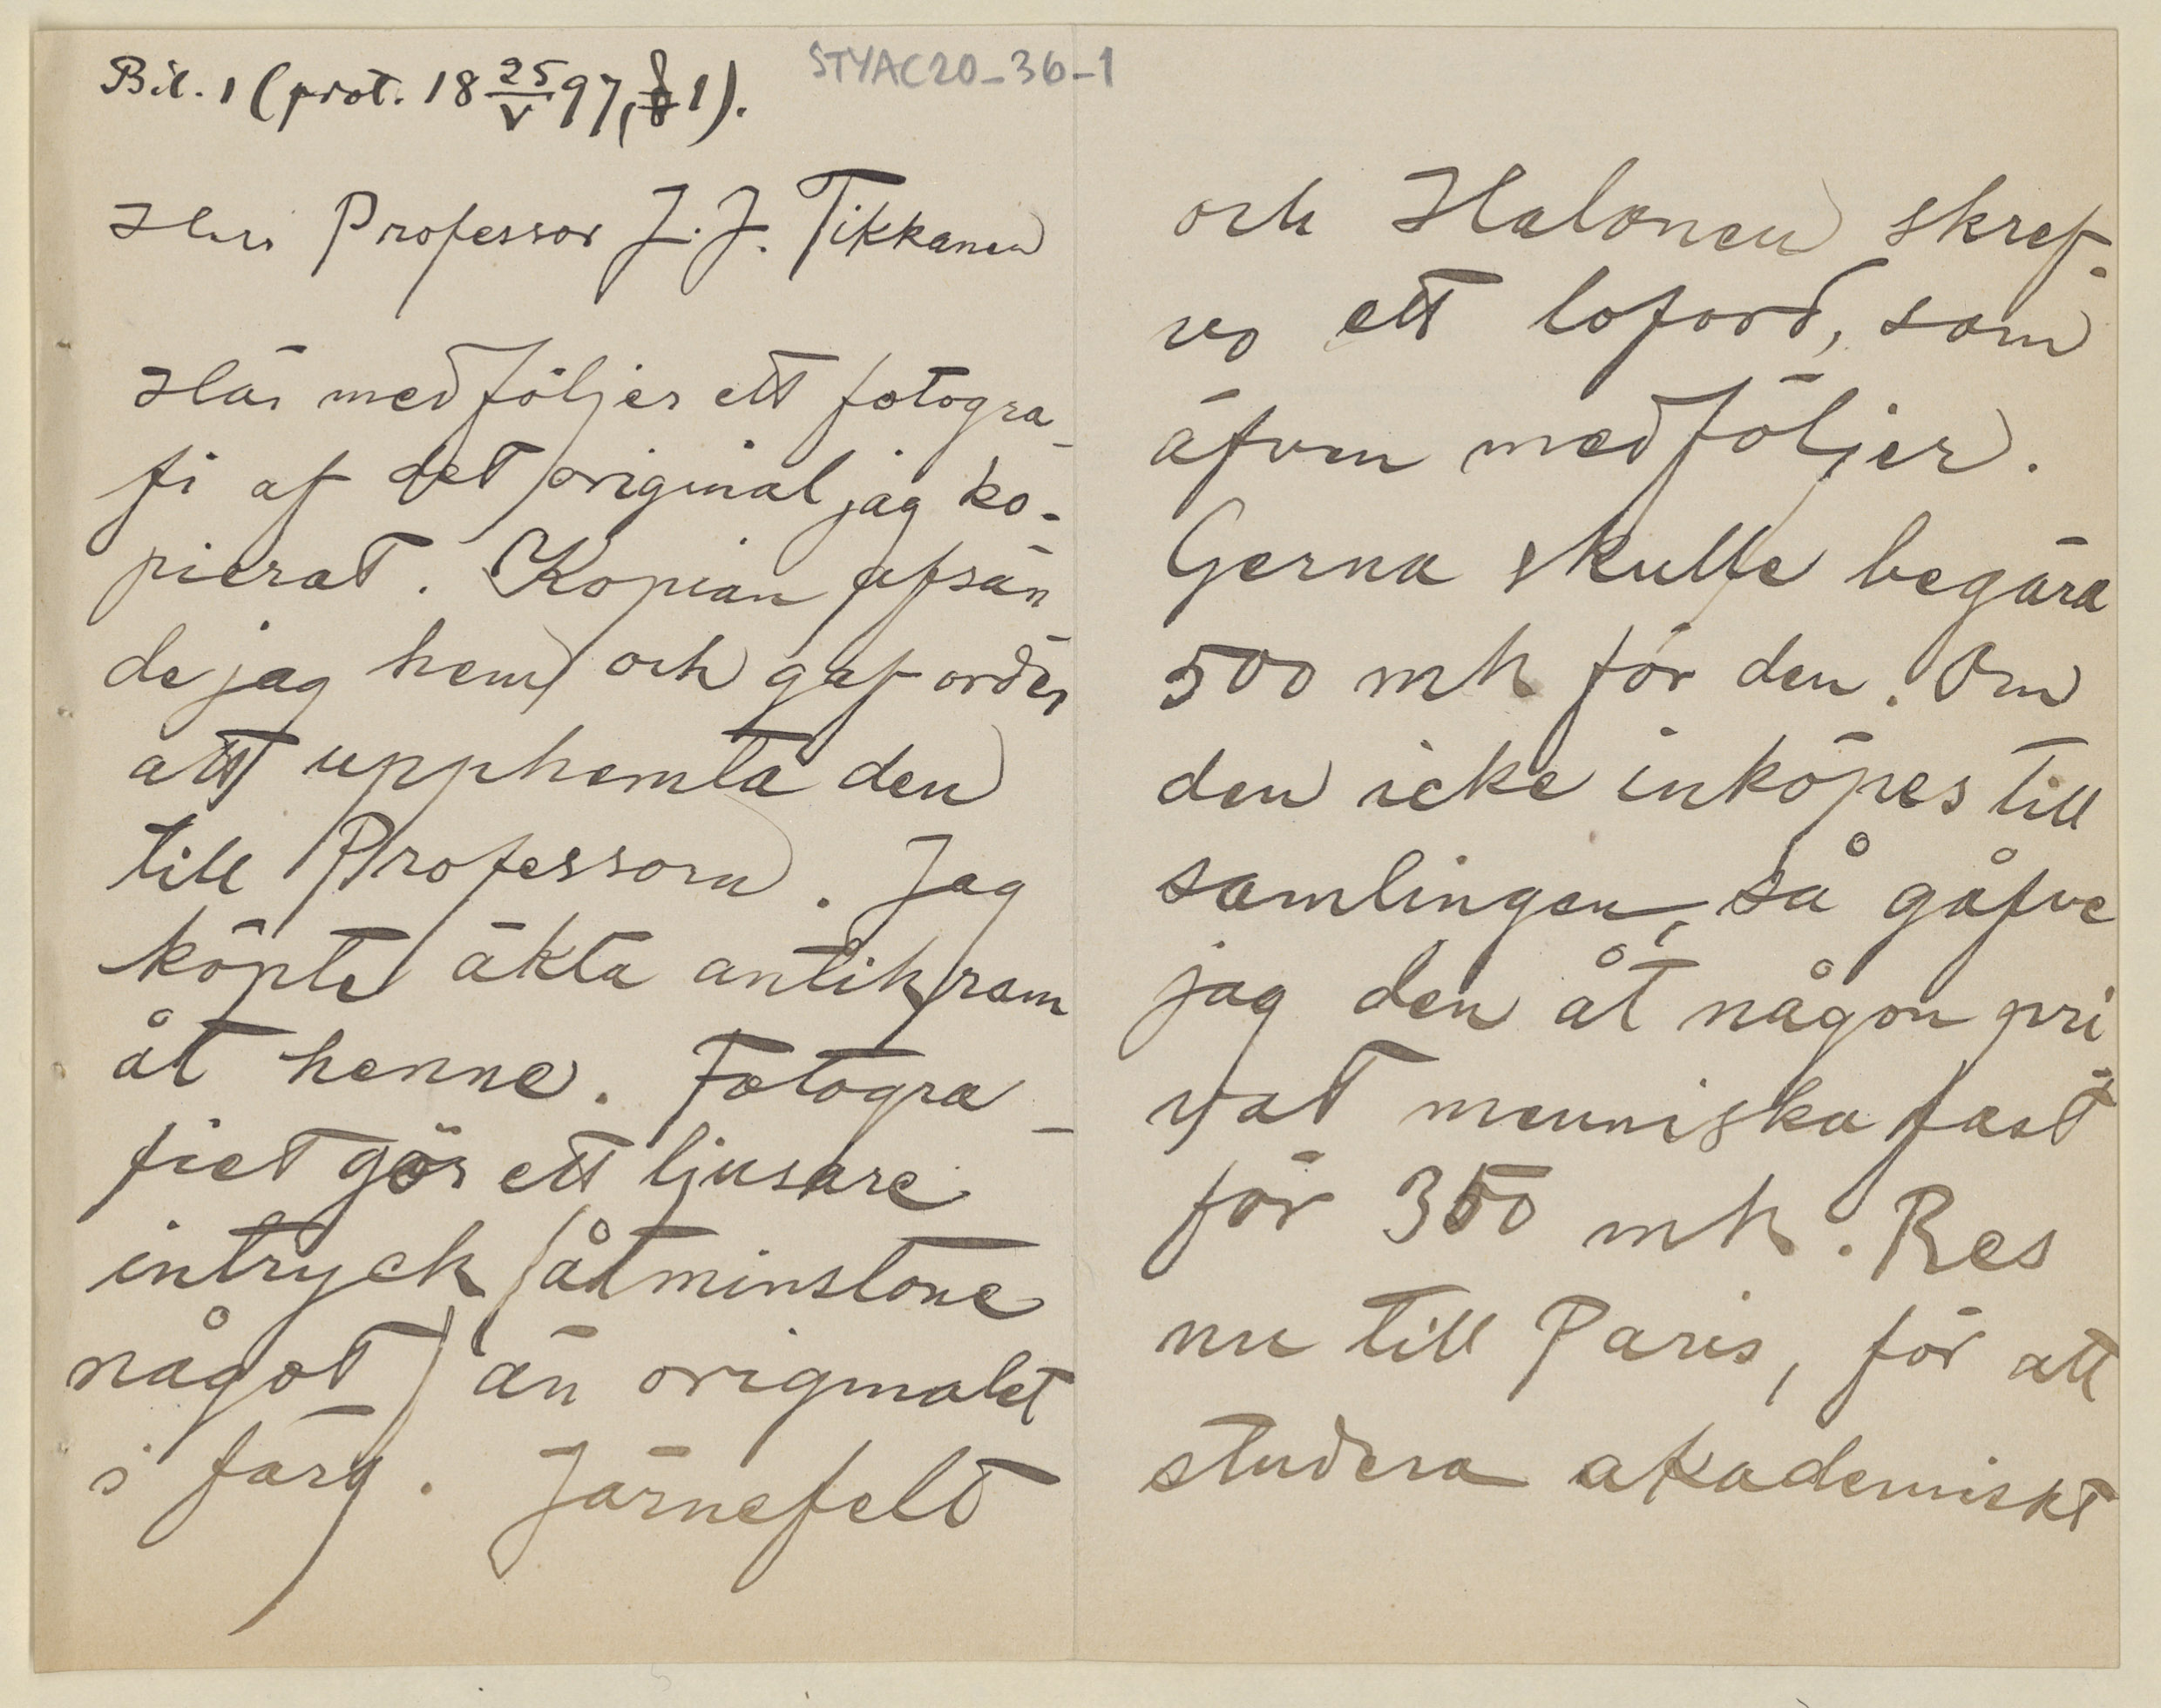 Bil. 1 (prot. 18 25/V 97, § 1).
STYAC20-36-1
Herr Professor J. J. Tikkanen
Här medföljer ett fotogra-
fi af det original jag ko-
pierat. Kopian afsän
de jag hem och gaf order
att upphemta den
till Professorn. Jag
köpte äkta antik ram
åt henne. Fotogra-
fiet gör ett ljusare
intryck (åtminstone
något) än originalet
i färg. Järnefelt
och Halonen skref-
vo ett loford, som
äfven medföljer.
Gerna skulle begära
500 mk för den. Om
den icke inköpes till
samlingen, så gåfve
jag den åt någon pri
vat menniska fast
för 350 mk. Res
nu till Paris, för att
studera akademiskt